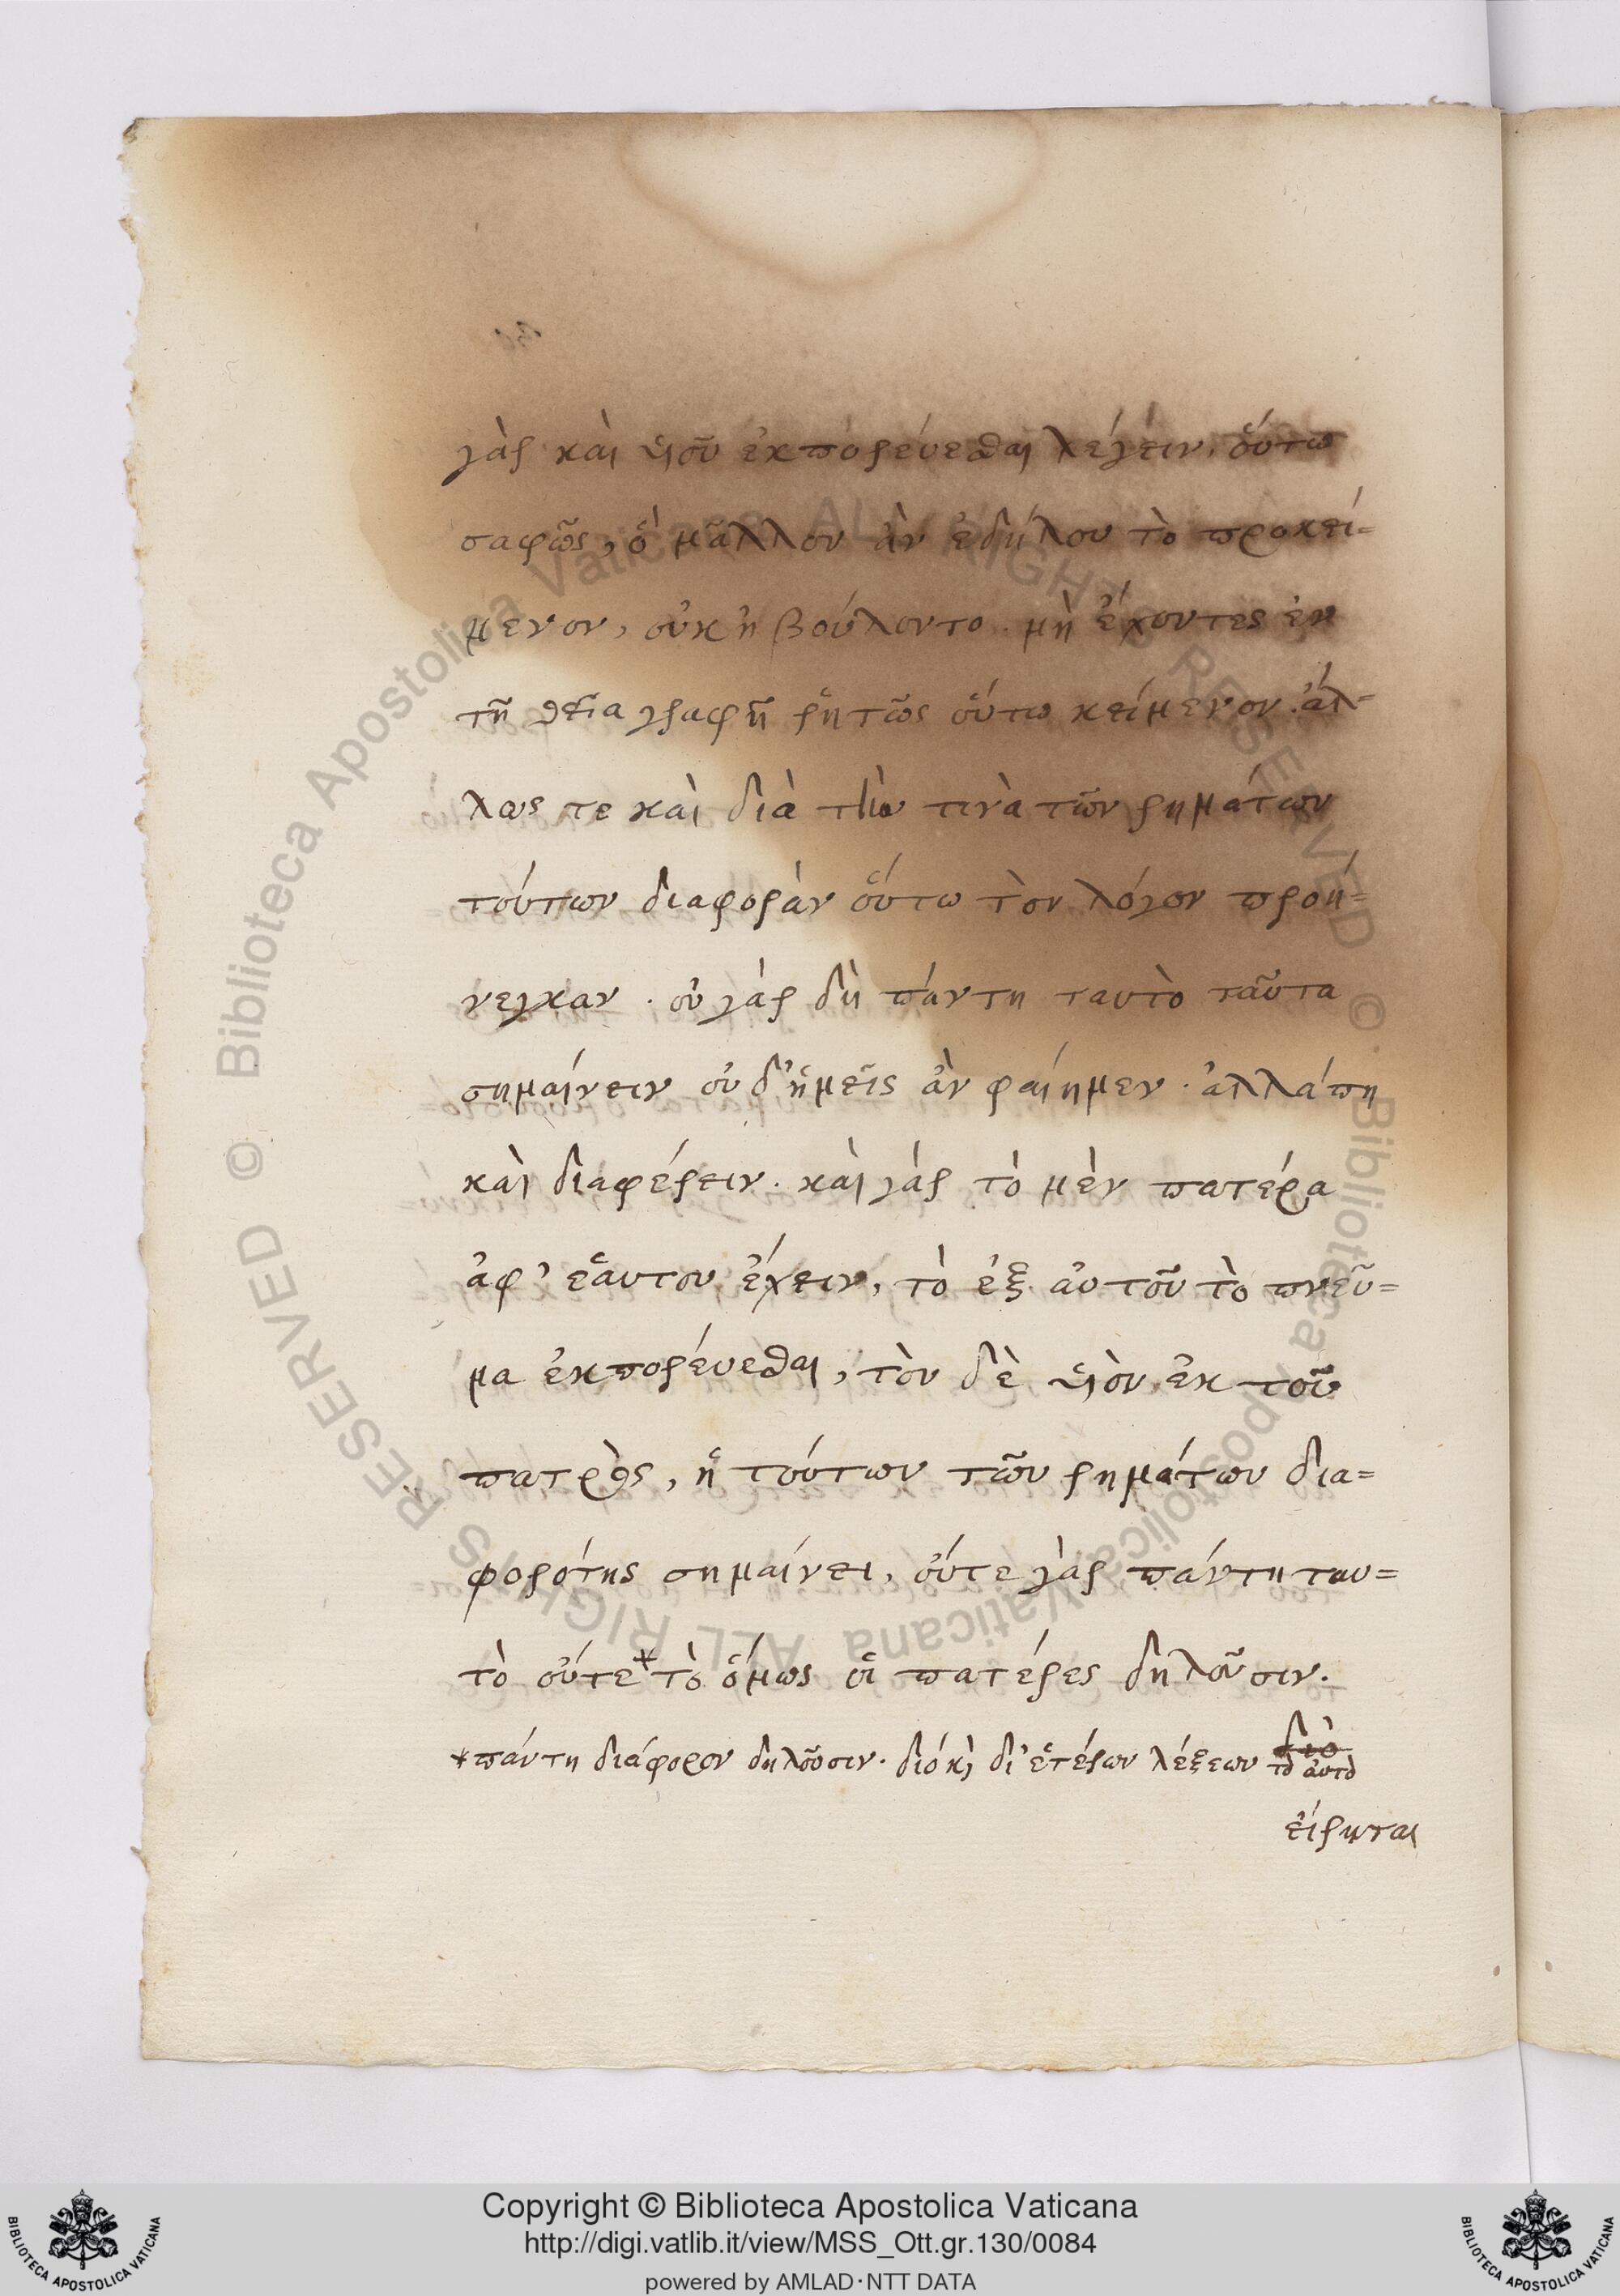 γὰρ καὶ υἱοῦ ἐκπορεύεσθαι λέγειν, οὕτω
σαφῶς, ὃ μᾶλλον ἂν ἐδήλου τὸ προκεί=
μενον, οὐκ ἠβούλοντο. μὴ ἔχοντες ἐν
τῇ θεία γραφῇ ῥητῶς οὕτω κείμενον. ἄλ=
λως τε καὶ διὰ τὴν τινὰ τῶν ρημάτων
τούτων διαφορὰν οὕτω τὸν λόγον προή=
νεγκαν. οὐ γὰρ δὴ πάντη ταυτὸ ταῦτα
σημαίνειν οὐδ' ἡμεῖς ἂν φαίημεν. ἀλλά πη
καὶ διαφέρειν. καὶ γὰρ τὸ μὲν πατέρα
ἀφ' ἑαυτου ἔχειν, τὸ ἐξ αὐτοῦ τὸ πνεῦ=
μα ἐκπορέυεσθαι, τὸν δὲ υἱὸν ἐκ τοῦ
πατρὸς, ἡ τούτων τῶν ρημάτων δια=
φορότης σημαίνει, οὔτε γὰρ πάντη ταυ=
τὸ οὔτε* τὸ ὅμως οἱ πατέρες δηλοῦσιν.
*πάντη διάφορον δηλοῦσιν. διό κ) δι' ἑτέρων λέξεων διὸ τὸ αὐτὸ
εἴρηται
Copyright © Biblioteca Apostolica Vaticana
http://digi.vatlib.it/view/MSS_Ott.gr.130/0084
powered by AMLAD·NTT DATA
BIBLIOTECA APOSTOLICA VATICANA
BIBLIOTECA APOSTOLICA VATICANA
© Biblioteca Apostolica Vaticana ALL RIGHTS RESERVED © Biblioteca Apostolica Vaticana ALL RIGHTS RESERVED